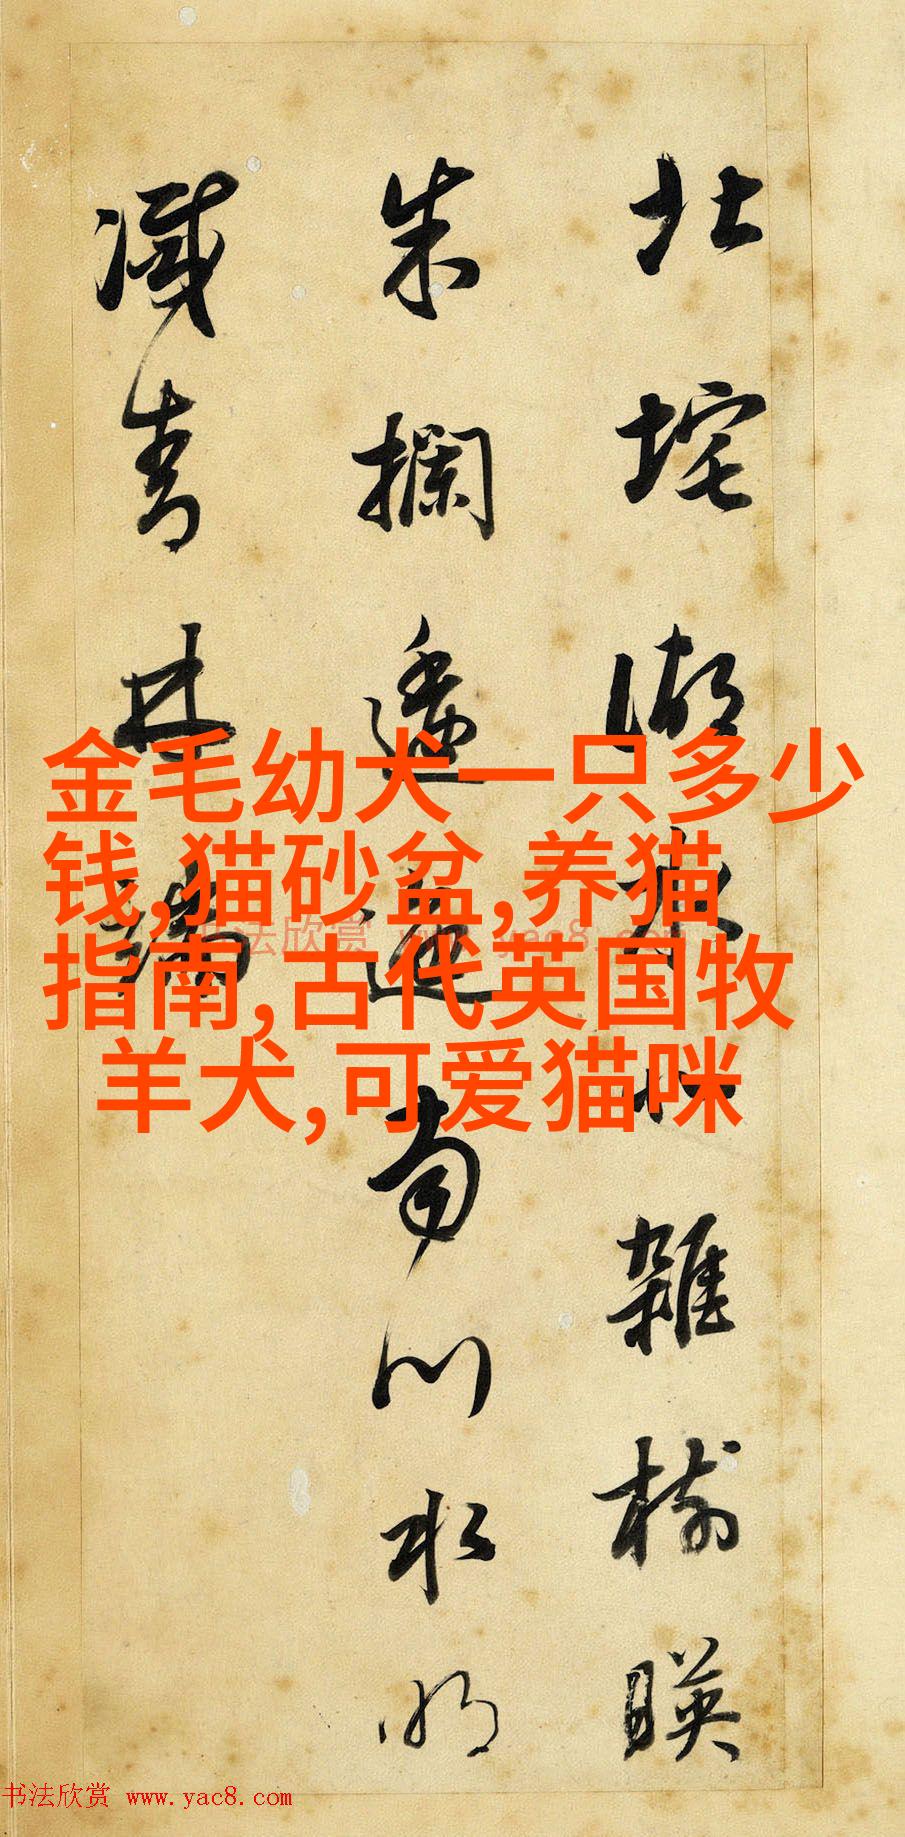 北垞湖水北雜樹映
朱欄逶迤向南川水明
滅青林端
金毛幼犬一只多少
钱,猫砂盆,养猫
指南,古代英国牧
羊犬,可爱猫咪
书法欣赏 www.yac8.com
书法欣赏 www.yac8.com